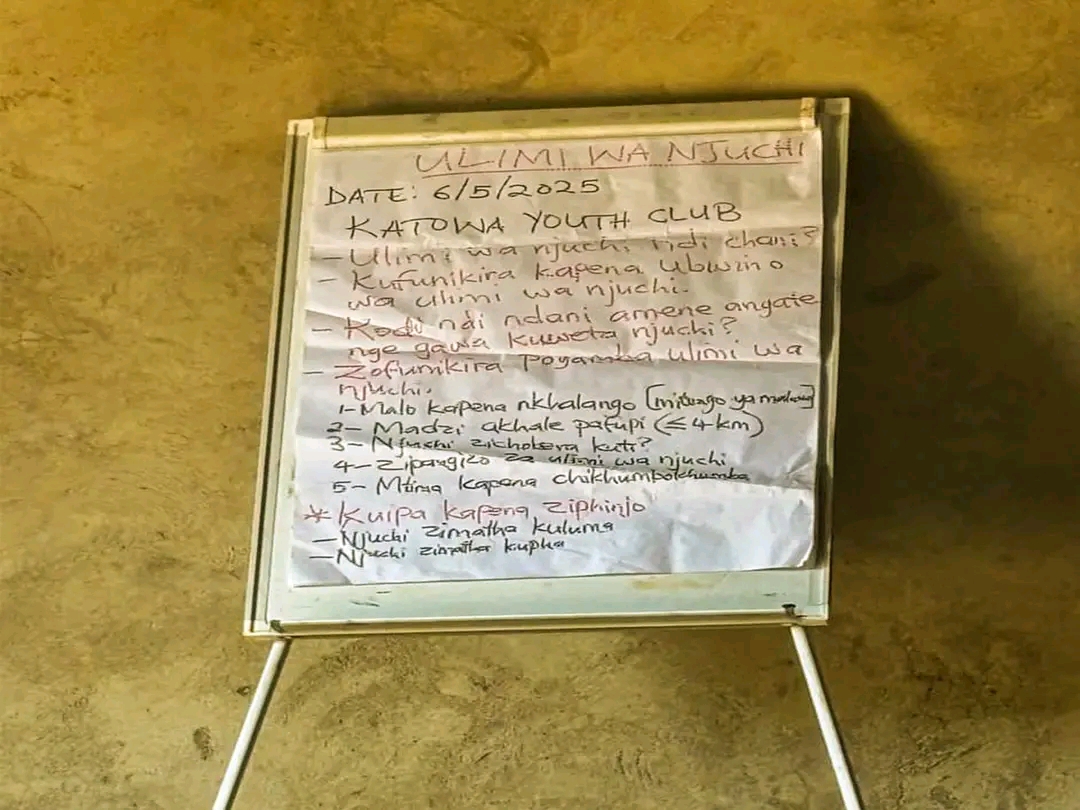 ULIMI WA NJUCHI
DATE: 6/5/2025
KATOWA YOUTH CLUB
- Ulimi wa njuchi ndi chani?
- Kufunikira kapena ubwino
wa ulimi wa njuchi.
- Kodi ndi ndani amene angate
nge gawa kuweta njuchi?
- Zofunikira poyamba ulimi wa
njuchi.
1- Malo kapena nkhalango [mitengo ya
2- Madzi akhale pafupi (≤4km)
3- Njuchi zichokera kuti?
4- Zipangizo za ulimi wa njuchi
5- Mtima kapena
* Kuipa kapena ziphinjo
- Njuchi zimatha kuluma
- Njuchi zimatha kupha